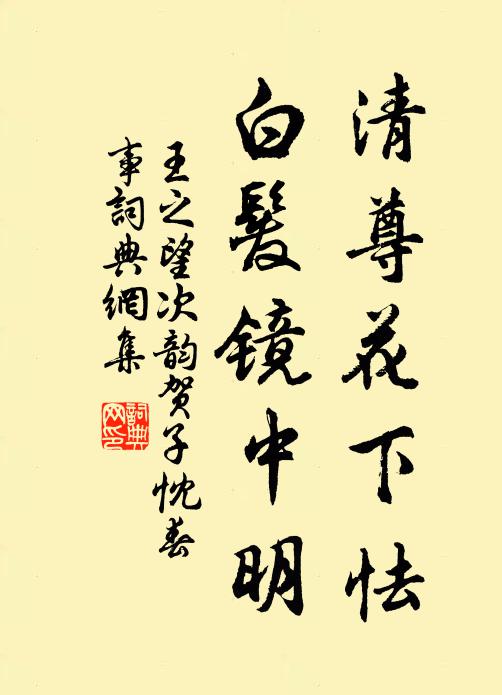 清尊花下怯
白髮鏡中明
王之望次韵贺子忱春
事詞典網集
詞典
网印